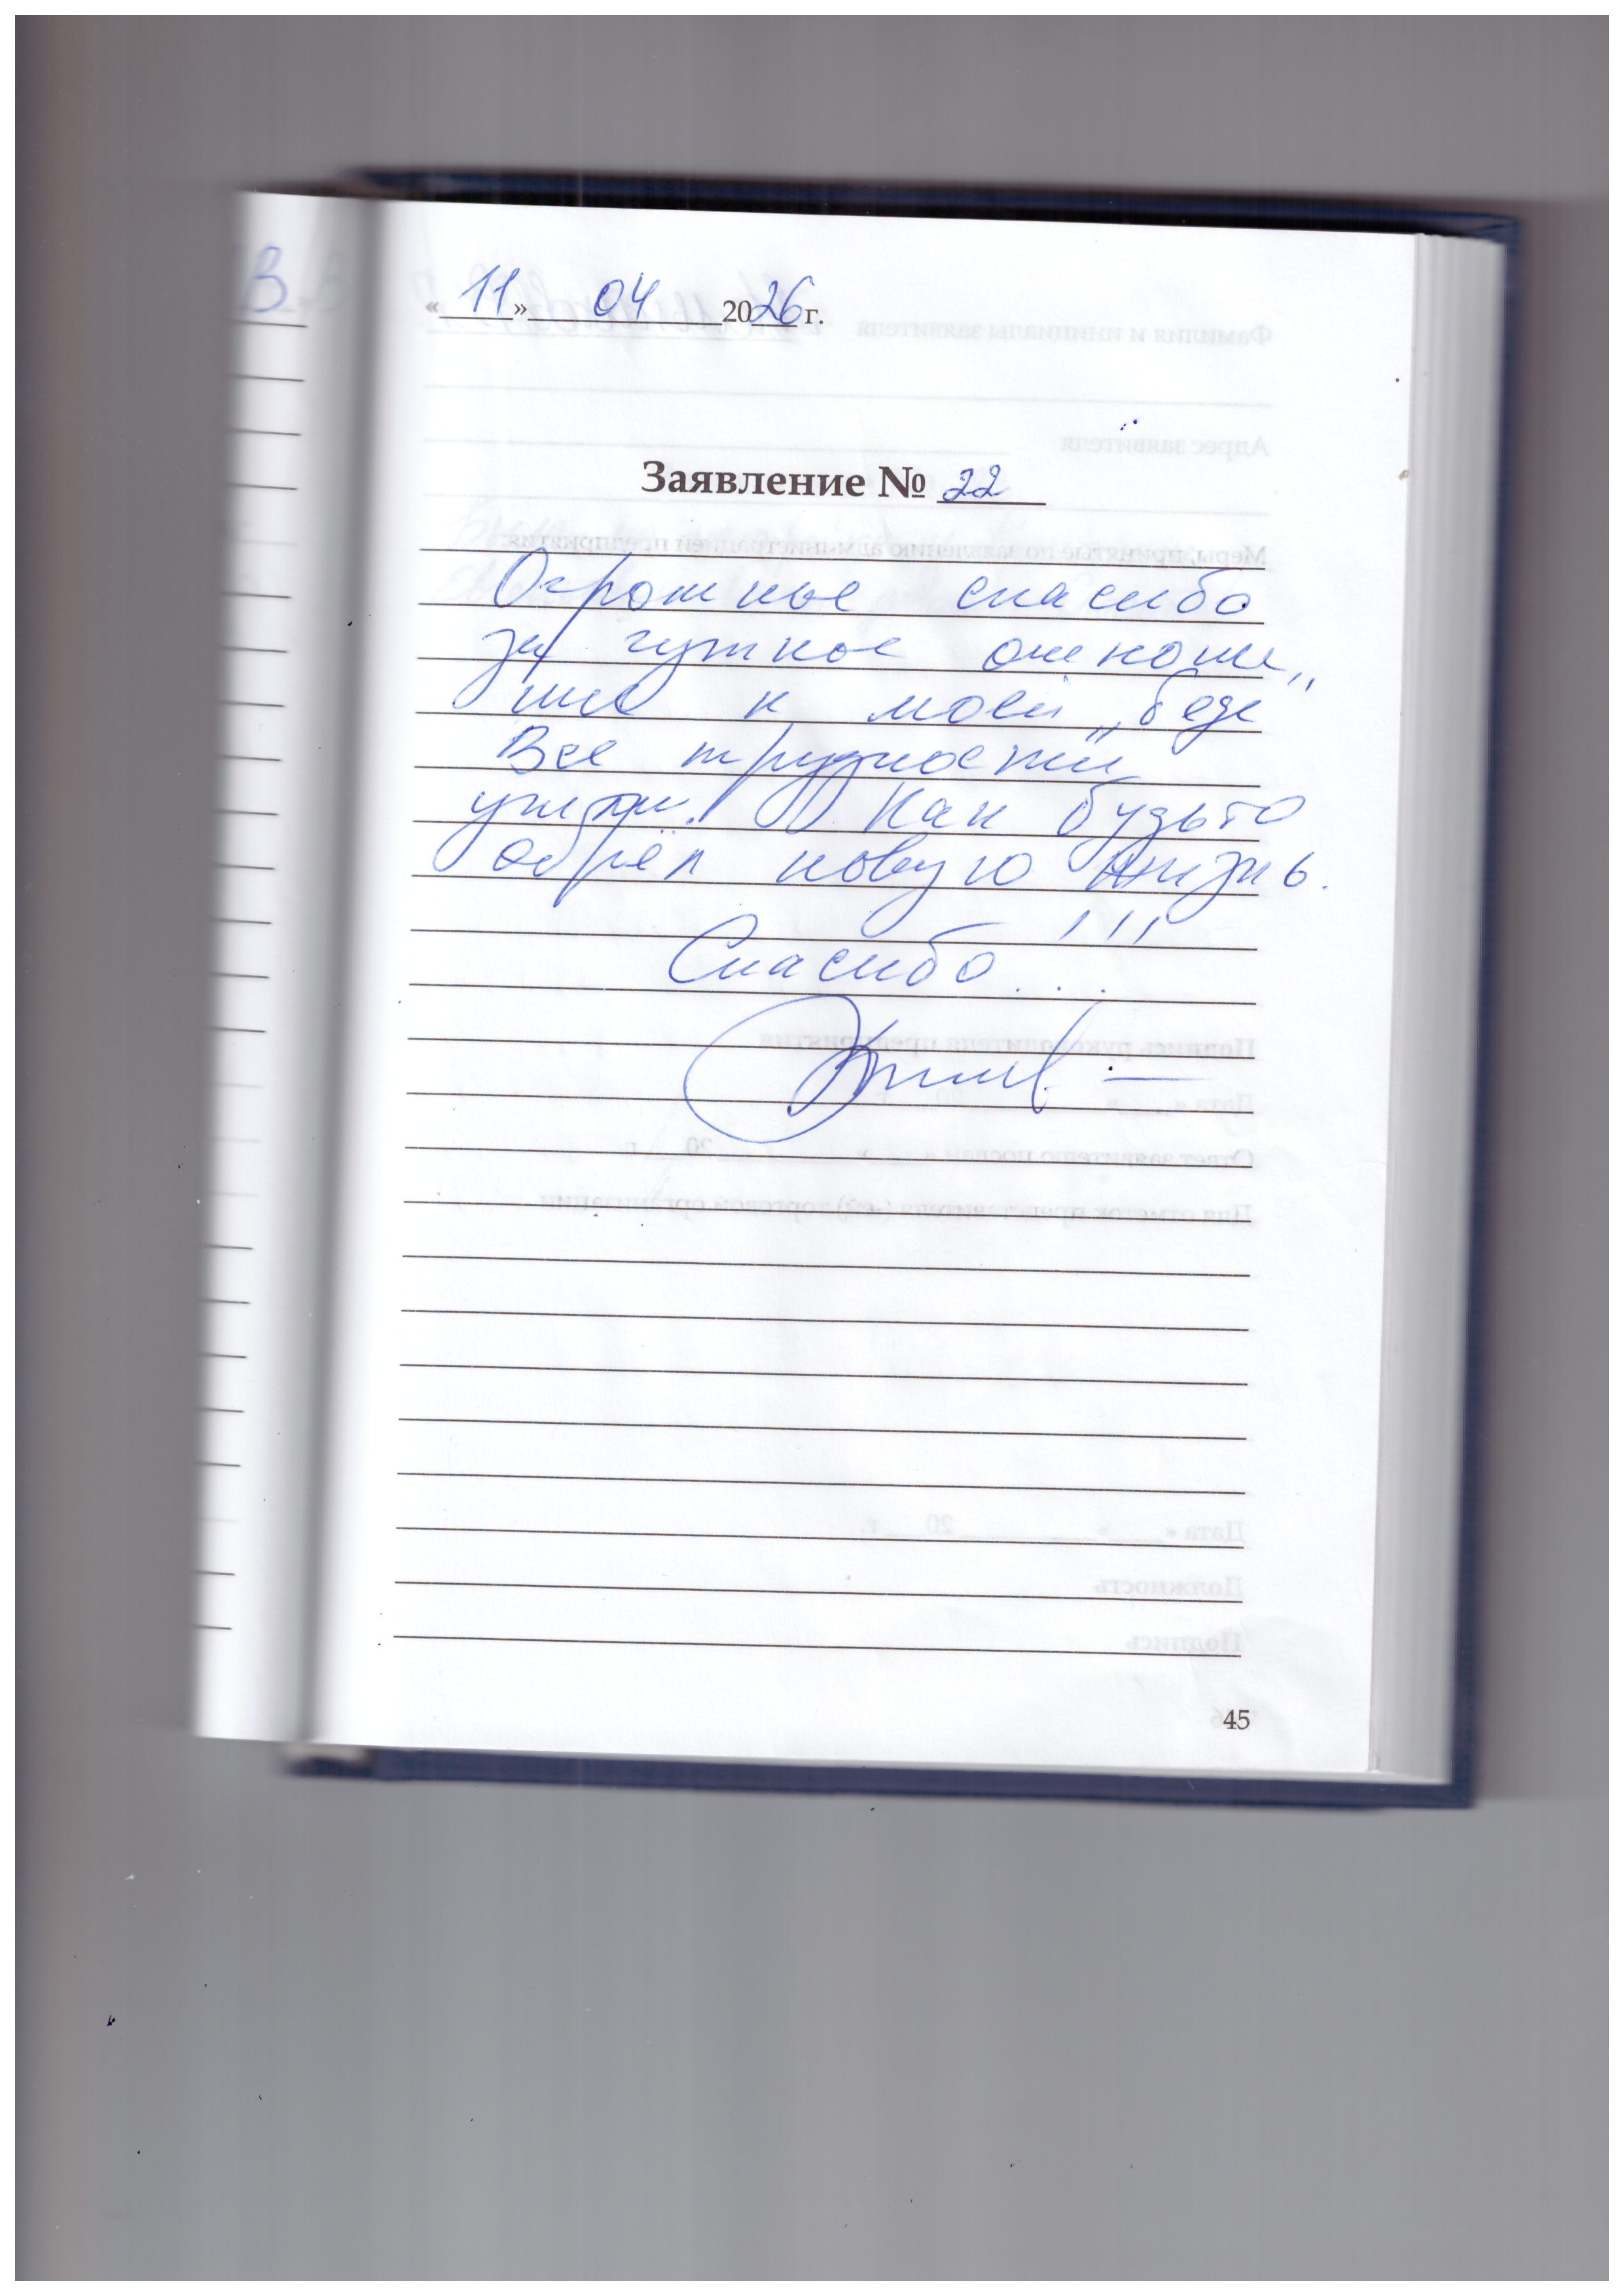 «11» 04 2026 г.
Заявление № 22
Огромное спасибо
за чуткое отноше„
ние к моей „беде"
Все трудности
учтены. Как будьто
обрёл новую жизнь.
Спасибо!!!
45